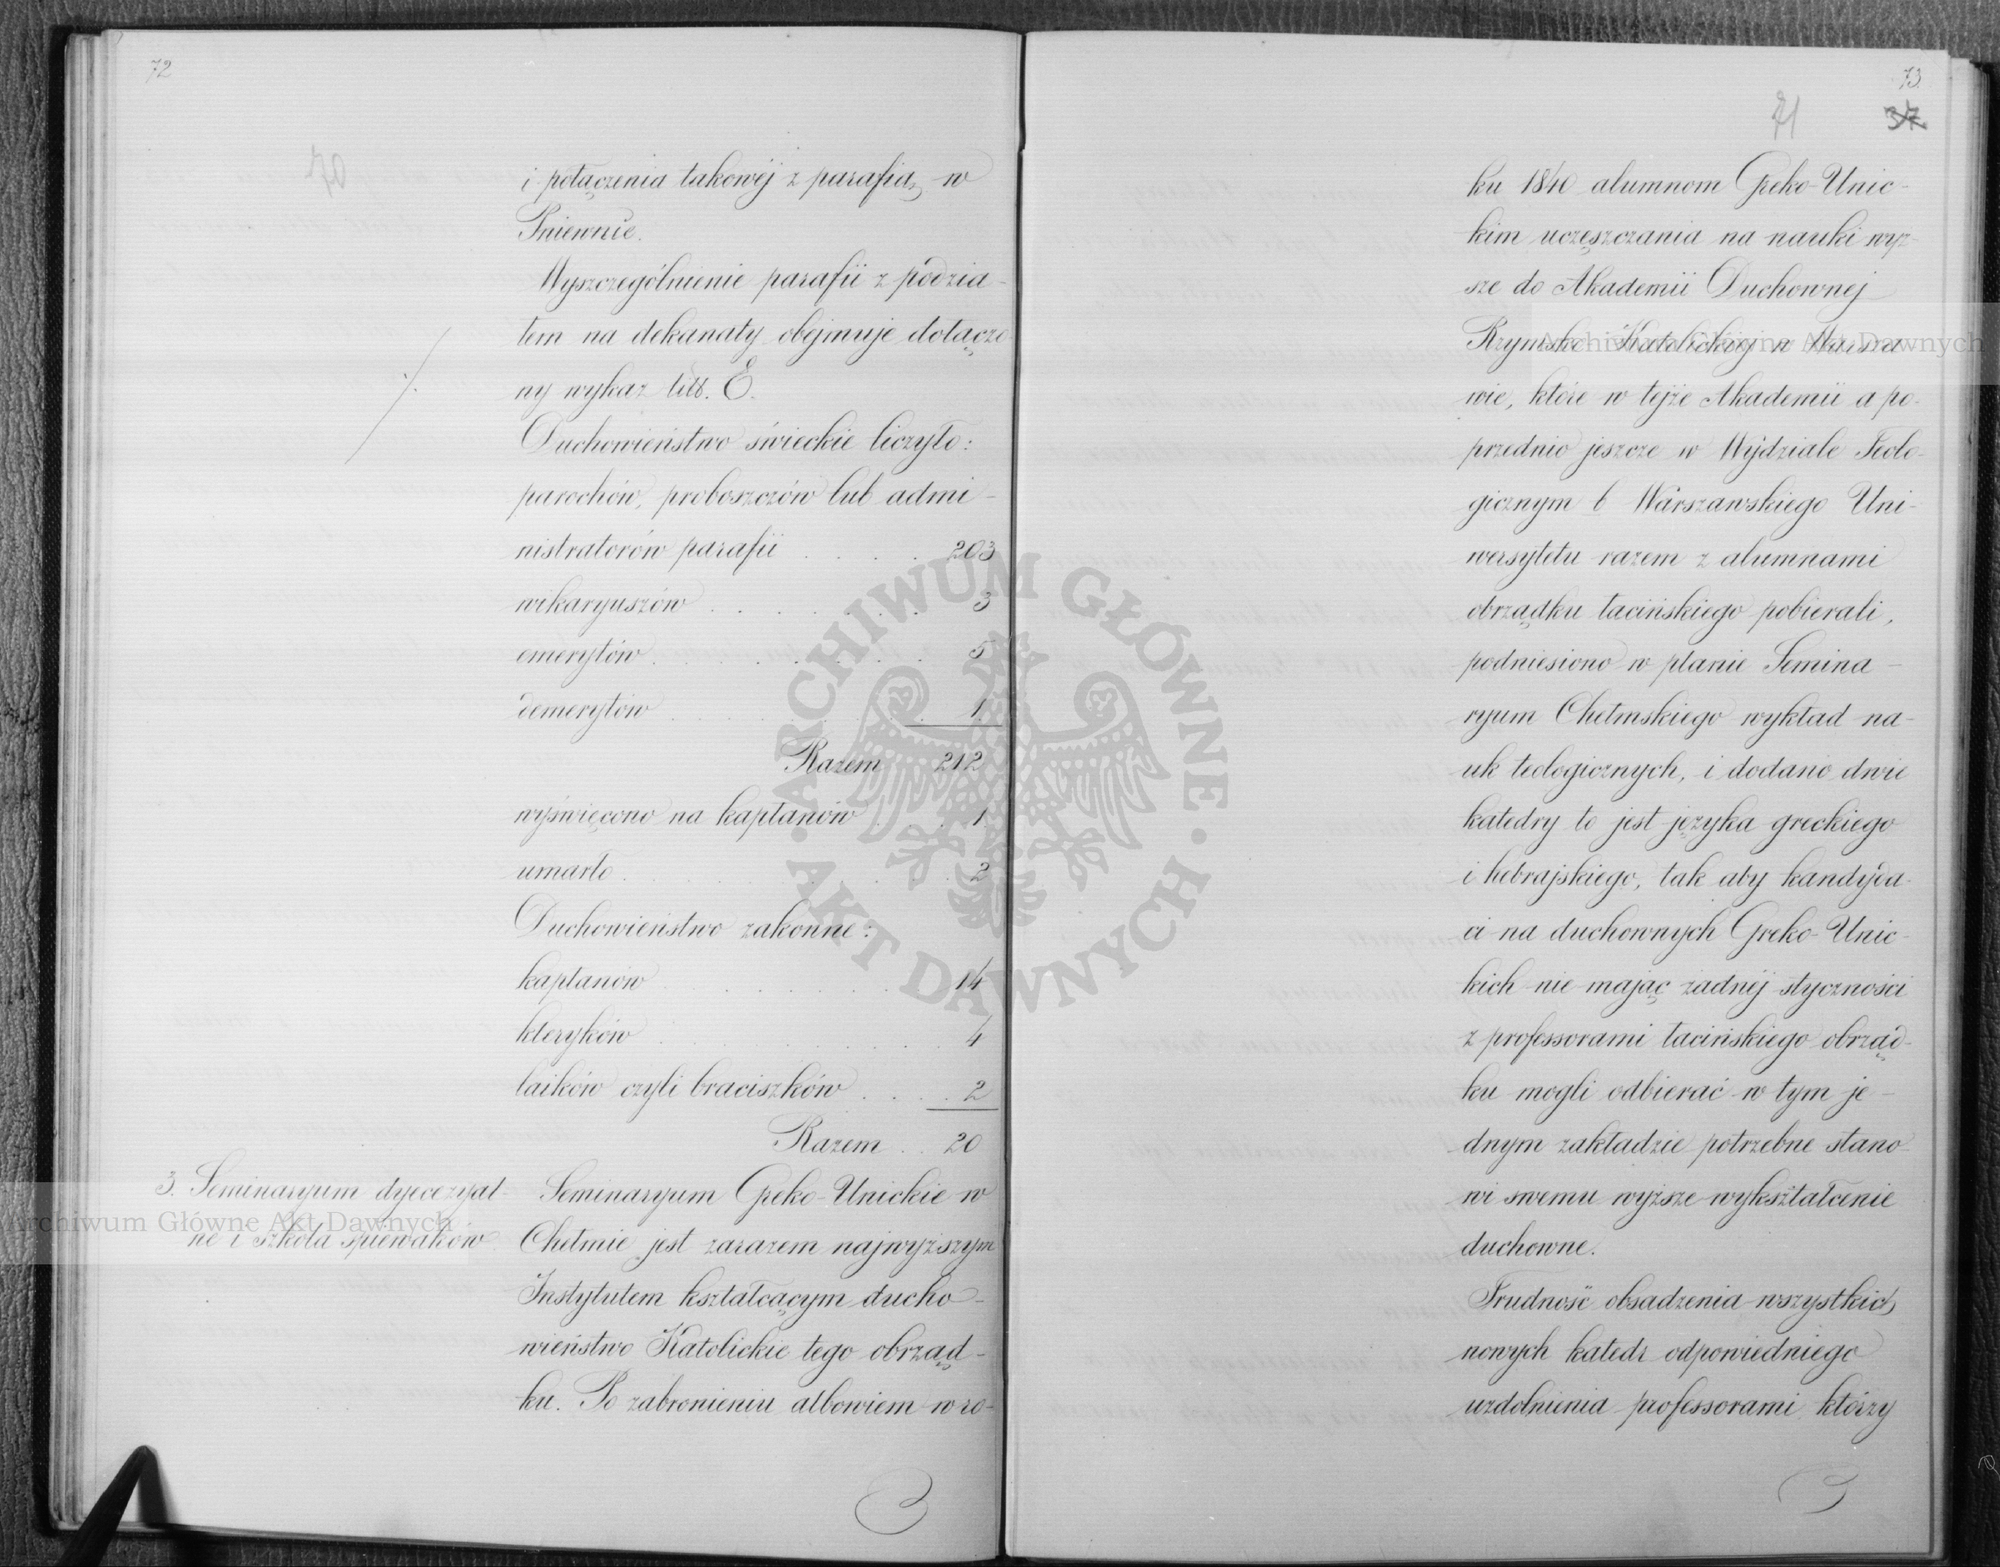 72
70
i połączenia takowéj z parafią w
Pniewnie.
Wyszczególnienie parafii z podzia-
łem na dekanaty obejmuje dołączo
ny wykaz litt. E.
Duchowieństwo świeckie liczyło:
parochów, proboszczów lub admi-
nistratorów parafii . . . . 203
wikaryuszów . . . . . . 3
emerytów . . . . . . . 5
demerytów . . . . . . 1
Razem 212
wyświęcono na kapłanów . . 1
umarło . . . . . . . 2
Duchowieństwo zakonne:
kapłanów . . . . . . 14
kleryków . . . . . . 4
laików czyli braciszków . . . . 2
Razem . . 20
3. Seminaryum dyecezyal-
ne i szkoła śpiewaków
Seminaryum Greko-Unickie w
Chełmie jest zarazem najwyższym
Instytutem kształcącym ducho-
wieństwo Katolickie tego obrząd-
ku. Po zabronieniu albowiem w ro-
73
71
37
ku 1840 alumnom Greko-Unic-
kim uczęszczania na nauki wyż-
sze do Akademii Duchownej
Rzymsko-Katolickiej w Warsza
wie, które w tejże Akademii a po-
przednio jeszcze w Wydziale Teolo-
gicznym b Warszawskiego Uni-
wersytetu razem z alumnami
obrządku łacińskiego pobierali,
podniesiono w planie Semina-
ryum Chełmskiego wykład na-
uk teologicznych, i dodano dwie
katedry to jest języka greckiego
i hebrajskiego, tak aby kandyda-
ci na duchownych Greko-Unic-
kich nie mając żadnéj styczności
z professorami łacińskiego obrząd-
ku mogli odbierać w tym je-
dnym zakładzie potrzebne stano-
wi swemu wyższe wykształcenie
duchowne.
Trudność obsadzenia wszystkich
nowych katedr odpowiedniego
uzdolnienia professorami, którzy
ARCHIWUM GŁÓWNE AKT DAWNYCH
Archiwum Główne Akt Dawnych
Archiwum Główne Akt Dawnych